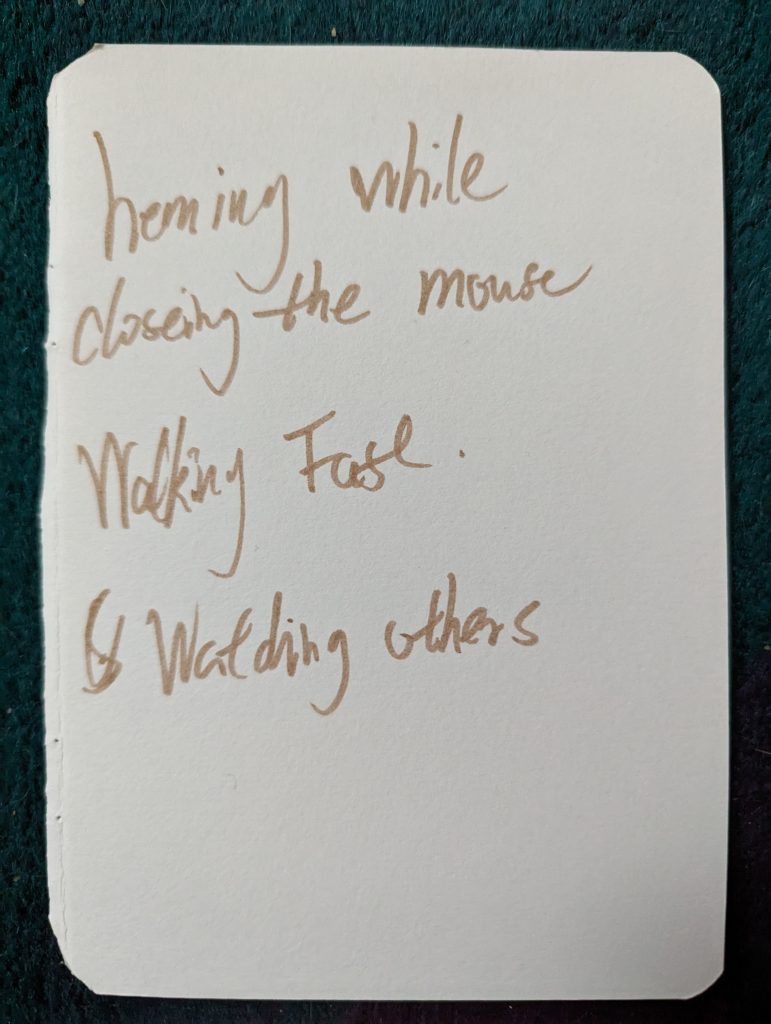 heming while
closeing the mouse
Walking Fast.
& Watching others